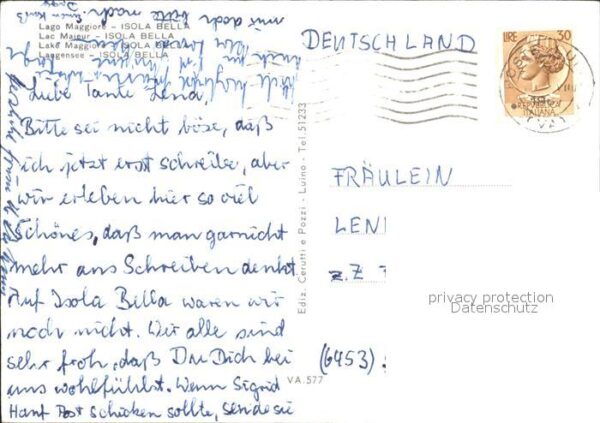 Lago Maggiore - ISOLA BELLA
Lac Majeur - ISOLA BELLA
Lake Maggiore - ISOLA BELLA
Langensee - ISOLA BELLA
DEUTSCHLAND
LIRE 30
REPUBBLICA
ITALIANA
Liebe Tante Lena,
Bitte sei nicht böse, daß
ich jetzt erst schreibe, aber
wir erleben hier so viel
Schönes, daß man garnicht
mehr ans Schreiben denkt.
Auf Isola Bella waren wir
noch nicht. Wir alle sind
sehr froh, daß Du Dich bei
uns wohlfühlst. Wenn Sigrid
Hanf Post schicken sollte, sende sie
mir doch bitte nach.
Ediz. Cerutti e Pozzi - Luino - Tel. 51233
VA.577
FRÄULEIN
LENI
z.Z
(6453)
privacy protection
Datenschutz